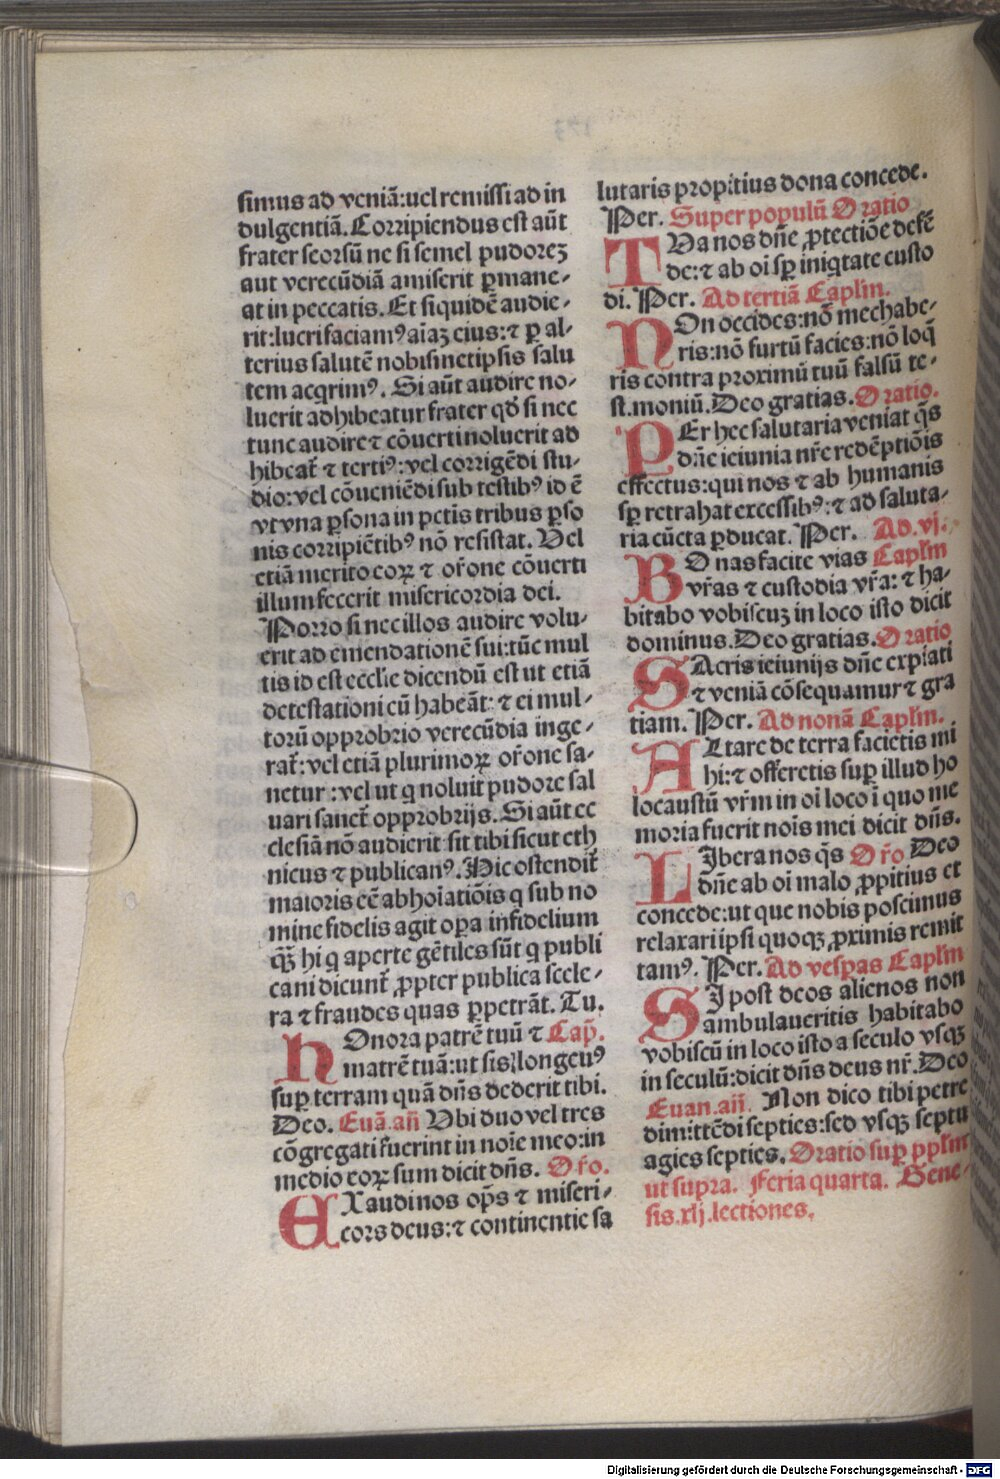 simus ad veniā:uel remissi ad in
dulgentiā. Corripiendus est aūt
frater seorsū ne si semel pudorez
aut verecūdiā amiserit ꝑmane-
at in peccatis. Et siquidē audie-
rit:lucrifaciamꝰ aīaz eius:⁊ ꝑ al-
terius salutē nobismetipsis salu
tem acq̄rimꝰ. Si aūt audire no-
luerit adhibeatur frater qd̓ si nec
tunc audire ⁊ cōuerti noluerit ad
hibeat̄ ⁊ tertiꝰ: vel corrigēdi stu-
dio: vel cōueniēdi sub testibꝰ id ē
vt vna ꝑsona in pctīs tribus ꝑso
nis corripiētibꝰ nō resistat. Vel
etiā merito eoꝝ ⁊ or̄one cōuerti
illum fecerit misericordia dei.
Porro si nec illos audire volu-
erit ad emendationē sui:tūc mul
tis id est eccl̄ie dicendū est ut etiā
detestationi eū habeāt: ⁊ ei mul-
torū opprobrio verecūdia inge-
rat̄: vel etiā plurimoꝝ or̄one sa-
netur: vel ut q noluit pudore sal
uari sanet̄ opprobrijs. Si aūt ec
clesiā nō audierit sit tibi sicut eth
nicus ⁊ publicanꝰ. Hic ostendit̄
maioris eē abhoīatiōis q sub no
mine fidelis agit oꝑa infidelium
qꝫ̄ hi q aperte gētiles sūt q publi
cani dicunt̄ ꝓpter publica scele-
ra ⁊ fraudes quas ꝑpetrāt. Tu.
HOnora patrē tuū ⁊ Cap̄.
matrē tuā: ut sis longeuꝰ
suꝑ terram quā dn̄s dederit tibi.
Deo. Euā.an̄ Vbi duo vel tres
cōgregati fuerint in noīe meo:in
medio eoꝝ sum dicit dn̄s. Or̄o.
EXaudi nos op̄s ⁊ miseri-
cors deus:⁊ continentie sa
lutaris propitius dona concede.
Per. Super populū Oratio
TVa nos dn̄e ꝓtectiōe defē
de:⁊ ab oī sꝑ iniq̄tate custo
di. Per. Ad tertiā Capl̄m.
NOn occides:nō mechabe-
ris:nō furtū facies:nō loq̄
ris contra proximū tuū falsū te-
st.moniū. Deo gratias. Oratio.
PEr hec salutaria veniat q̄s
dn̄e ieiunia nr̄e redēptiōis
effectus:qui nos ⁊ ab humanis
sꝑ retrahat excessibꝰ:⁊ ad saluta-
ria cūcta ꝑducat. Per. Ad.vj.
BOnas facite vias Capl̄m
vr̄as ⁊ custodia vr̄a: ⁊ ha-
bitabo vobiscuz in loco isto dicit
dominus. Deo gratias. Oratio
SAcris ieiunijs dn̄e expiati
⁊ veniā cōsequamur ⁊ gra
tiam. Per. Ad nonā Capl̄m.
ALtare de terra facietis mi
hi:⁊ offeretis suꝑ illud ho
locaustū vr̄m in oī loco ī quo me
moria fuerit noīs mei dicit dn̄s.
LIbera nos q̄s Or̄o Deo
dn̄e ab oī malo ꝓpitius et
concede:ut que nobis poscimus
relaxari ipsi quoqꝫ ꝓximis remit
tamꝰ. Per. Ad vesꝑas Capl̄m
SI post deos alienos non
ambulaueritis habitabo
vobiscū in loco isto a seculo vsqꝫ
in seculū:dicit dn̄s deus nr̄. Deo
Euan.an̄. Non dico tibi petre
dimittēdi septies:sed vsqꝫ septu
agies septies. Oratio suꝑ ppl̄m
ut supra. Feria quarta. Gene-
sis.xlj.lectiones.
Digitalisierung gefördert durch die Deutsche Forschungsgemeinschaft - DFG